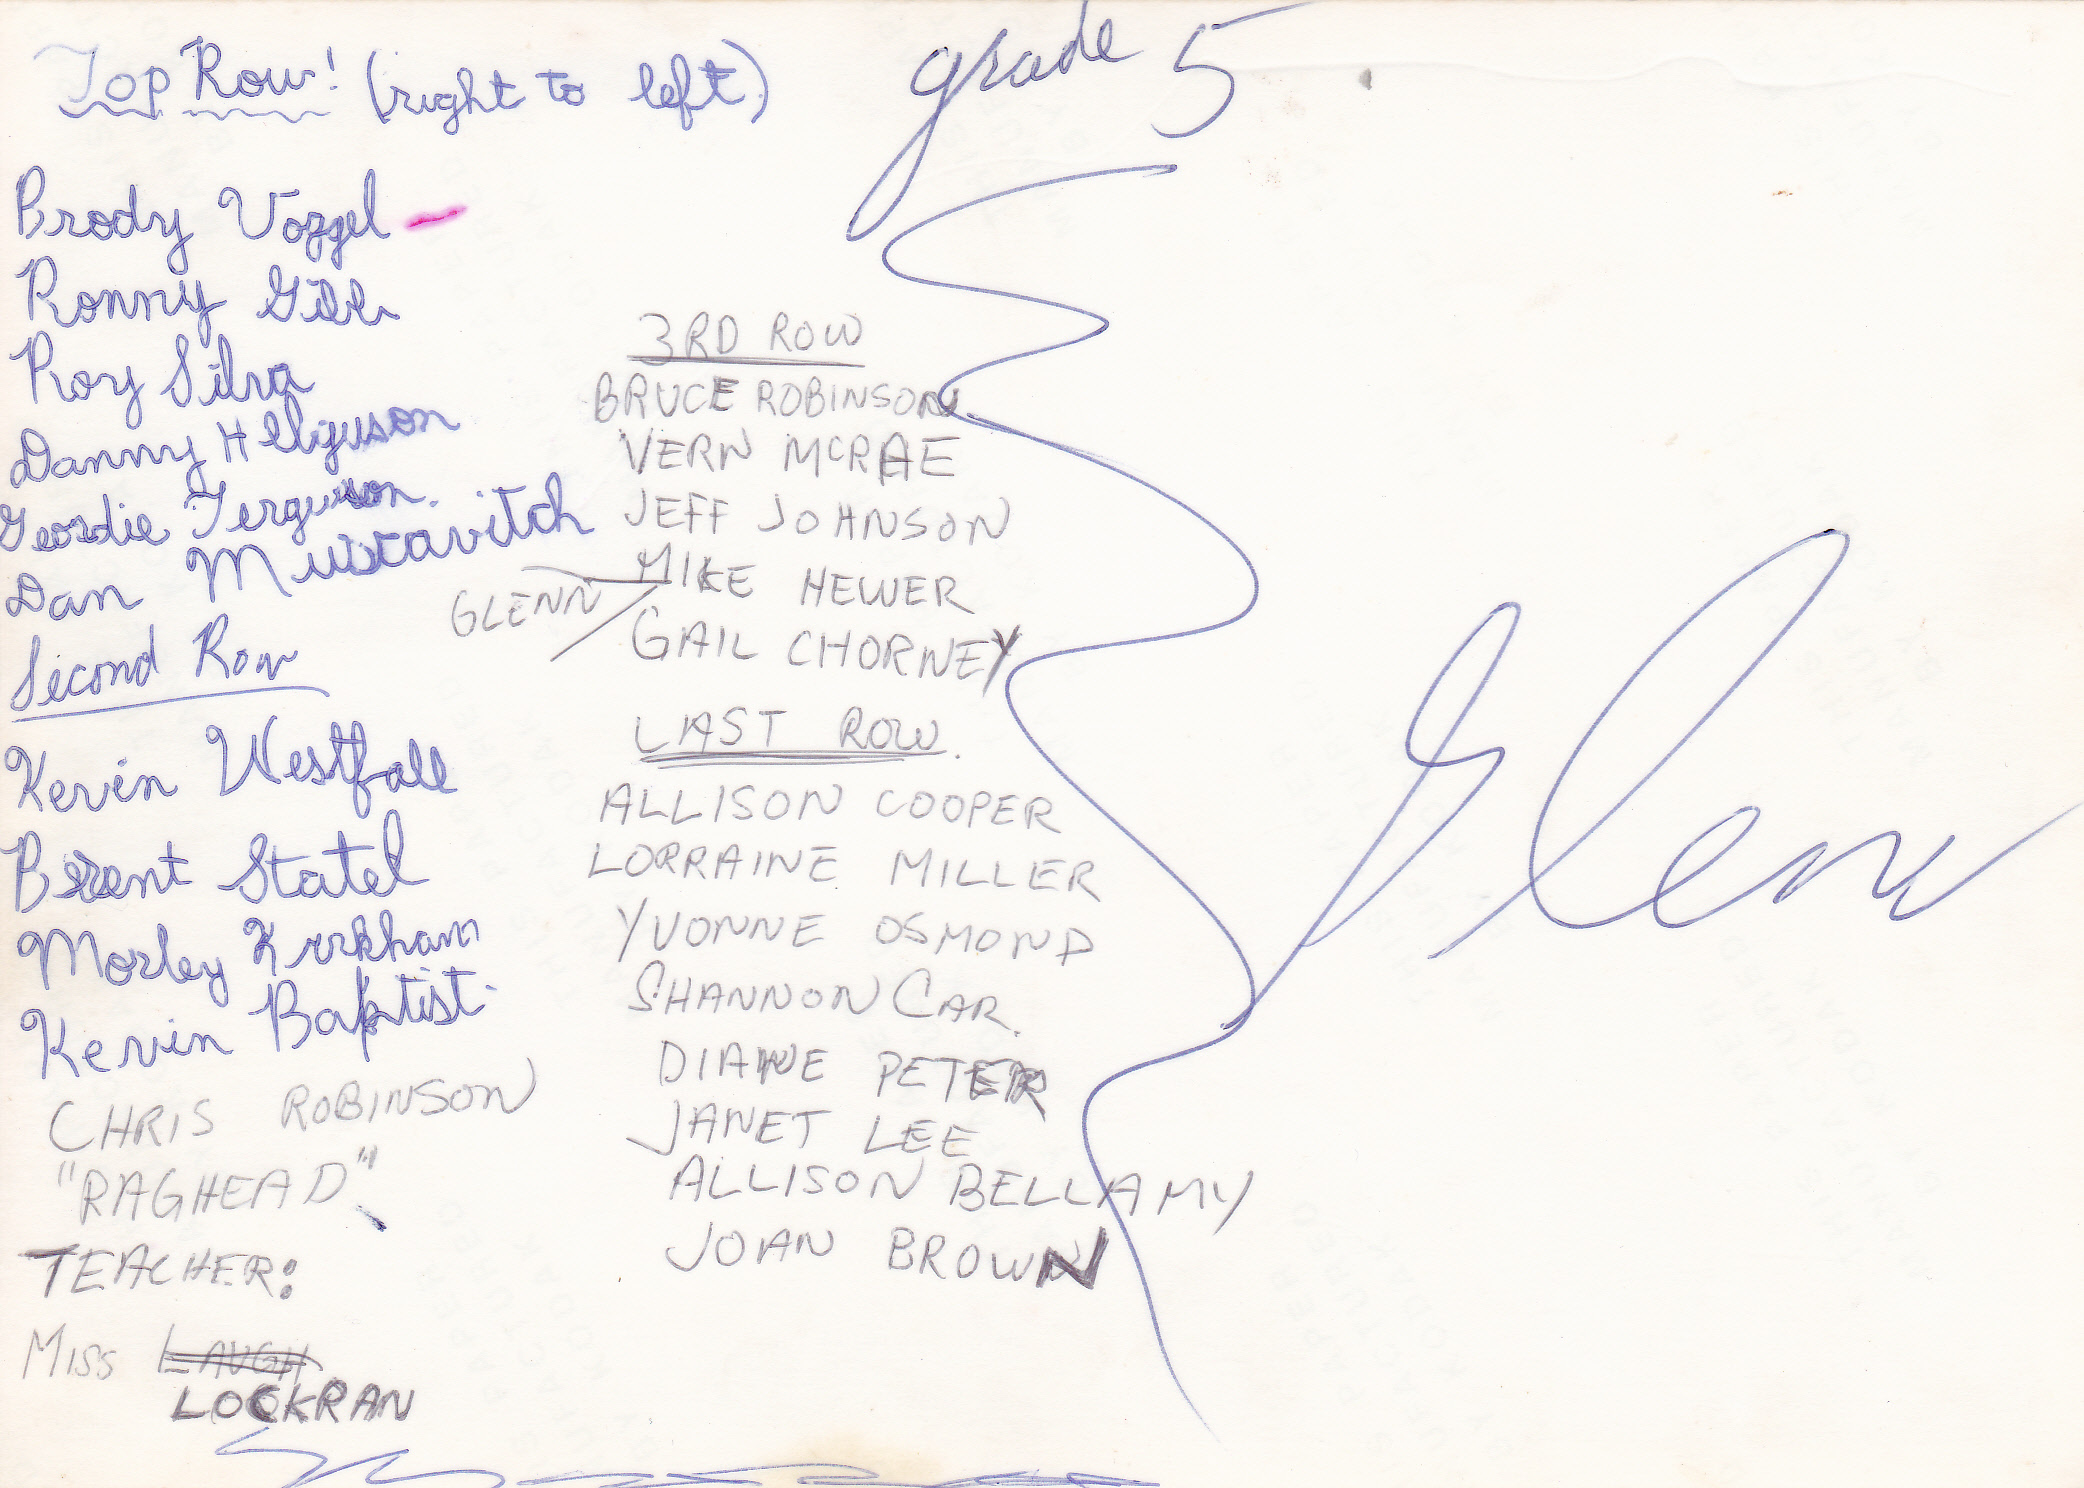 grade 5
Top Row! (right to left)
Brody Vozzel
Ronny Gibb
Roy Silva
Danny Hllyguson
Geordie Ferguson.
Dan Mustavitch
Second Row
Kevin Westfall
Brent Statel
Morley Kirkham
Kevin Baptist.
CHRIS ROBINSON
"RAGHEAD"
TEACHER:
MISS LAUGH
LOCKRAN
3RD ROW
BRUCE ROBINSON
VERN MCRAE
JEFF JOHNSON
MIKE HEWER
GLENN
GAIL CHORNEY
LAST ROW.
ALLISON COOPER
LORRAINE MILLER
YVONNE OSMOND
SHANNON CAR.
DIANE PETER
JANET LEE
ALLISON BELLAMY
JOAN BROWN
Glenn